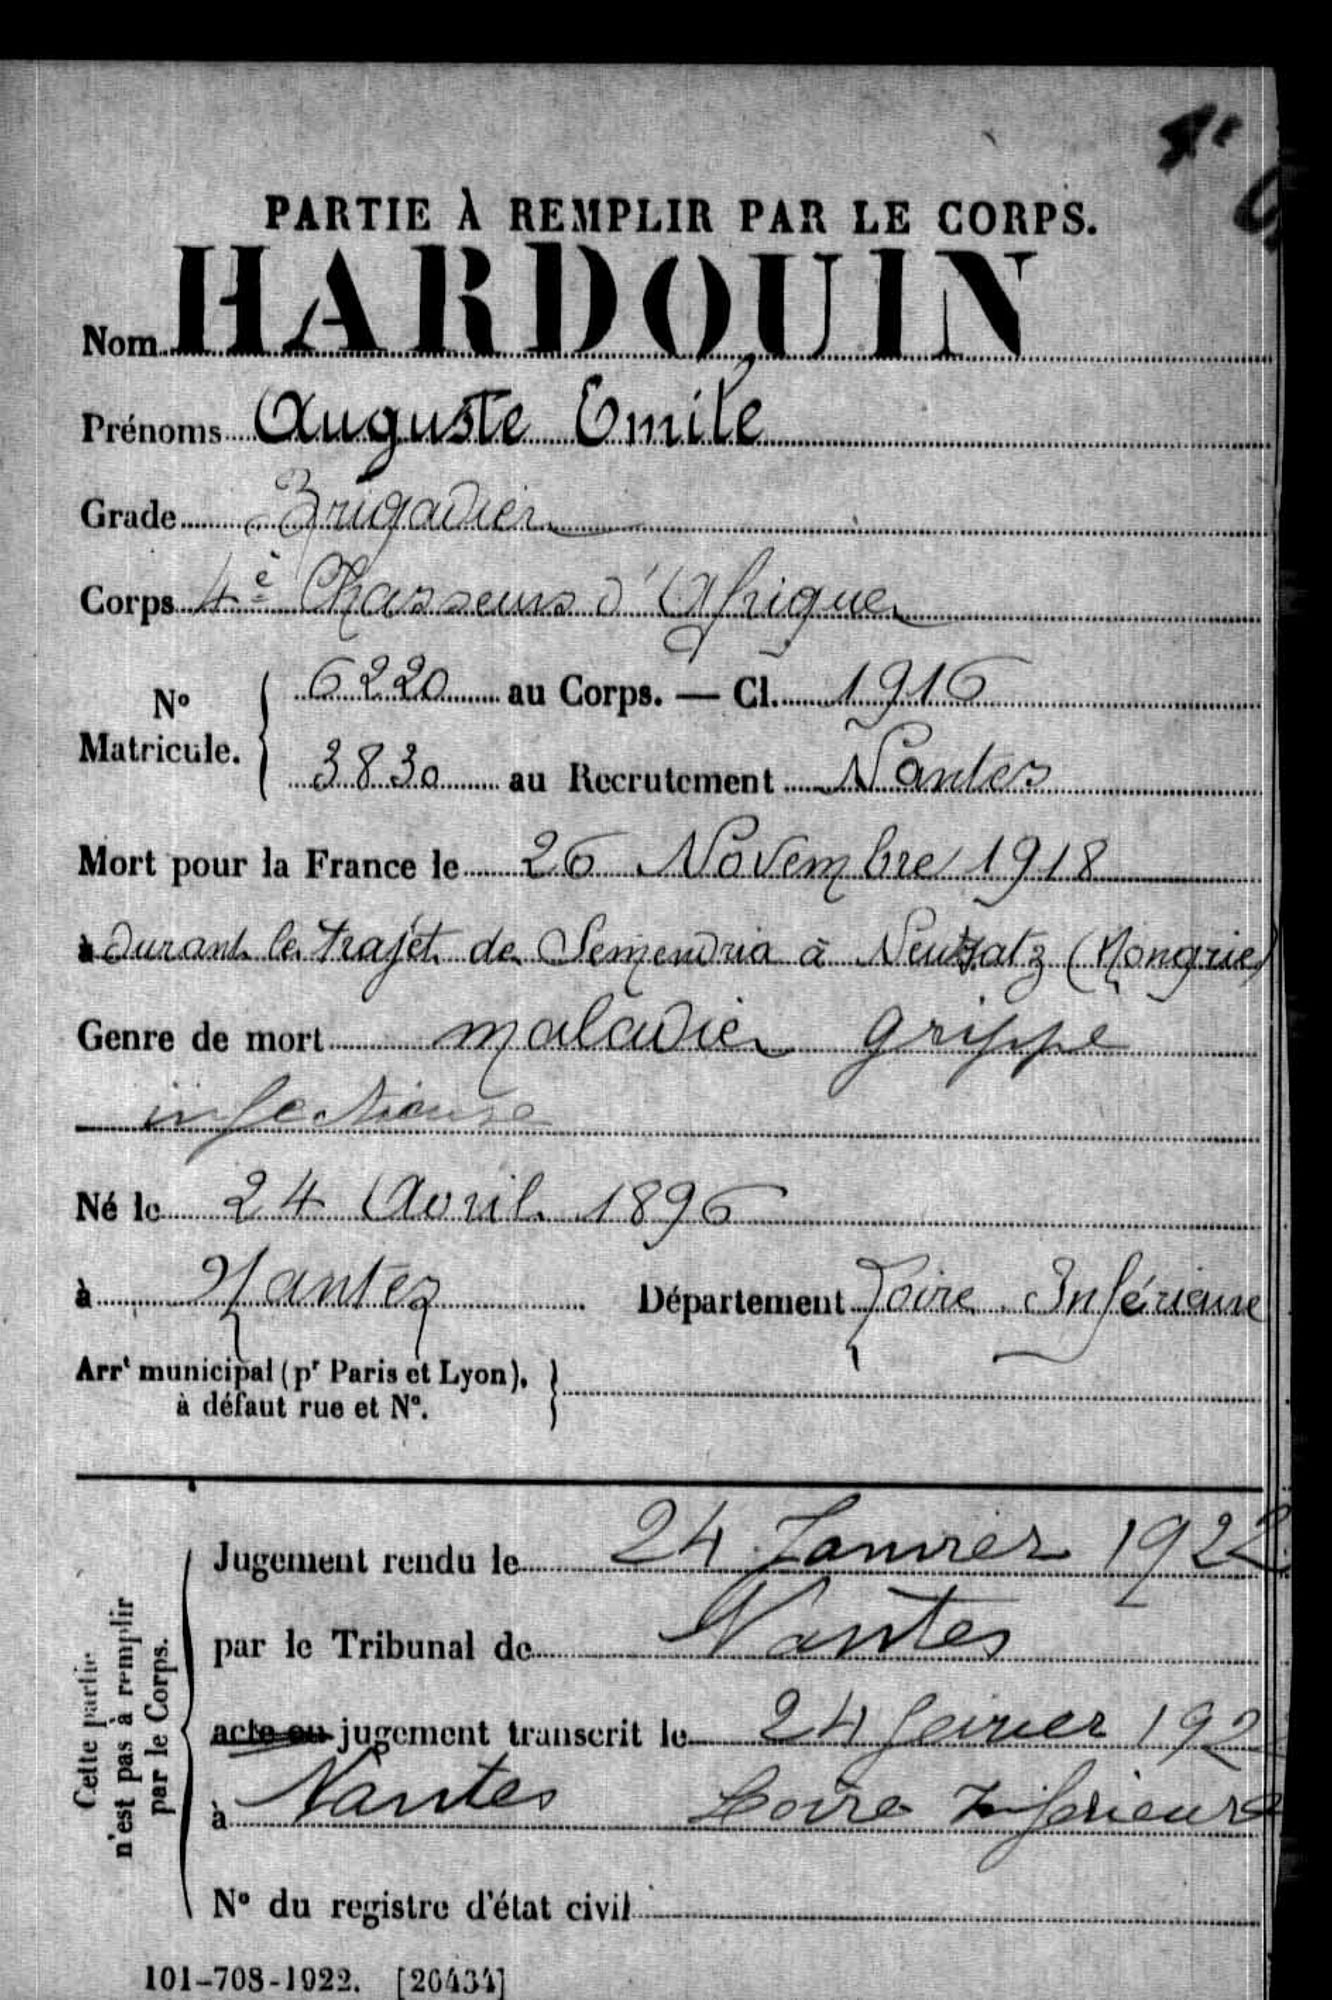 PARTIE À REMPLIR PAR LE CORPS.
Nom HARDOUIN
Prénoms Auguste Emile
Grade Brigadier
Corps 4e Chasseurs d'Afrique
No Matricule. { 6220 au Corps. — Cl. 1916
3830 au Recrutement Nantes
Mort pour la France le 26 Novembre 1918
à durant le trajet de Semendria à Neusatz (Hongrie)
Genre de mort maladie grippe
infectieuse
Né le 24 Avril 1896
à Nantes Département Loire Inférieure
Arrt municipal (pr Paris et Lyon), }
à défaut rue et No.
Cette partie
n'est pas à remplir
par le Corps.
Jugement rendu le 24 Janvier 1922
par le Tribunal de Nantes
acte ou jugement transcrit le 24 fevrier 192
à Nantes Loire Inferieure
No du registre d'état civil
101-708-1922. [26434]